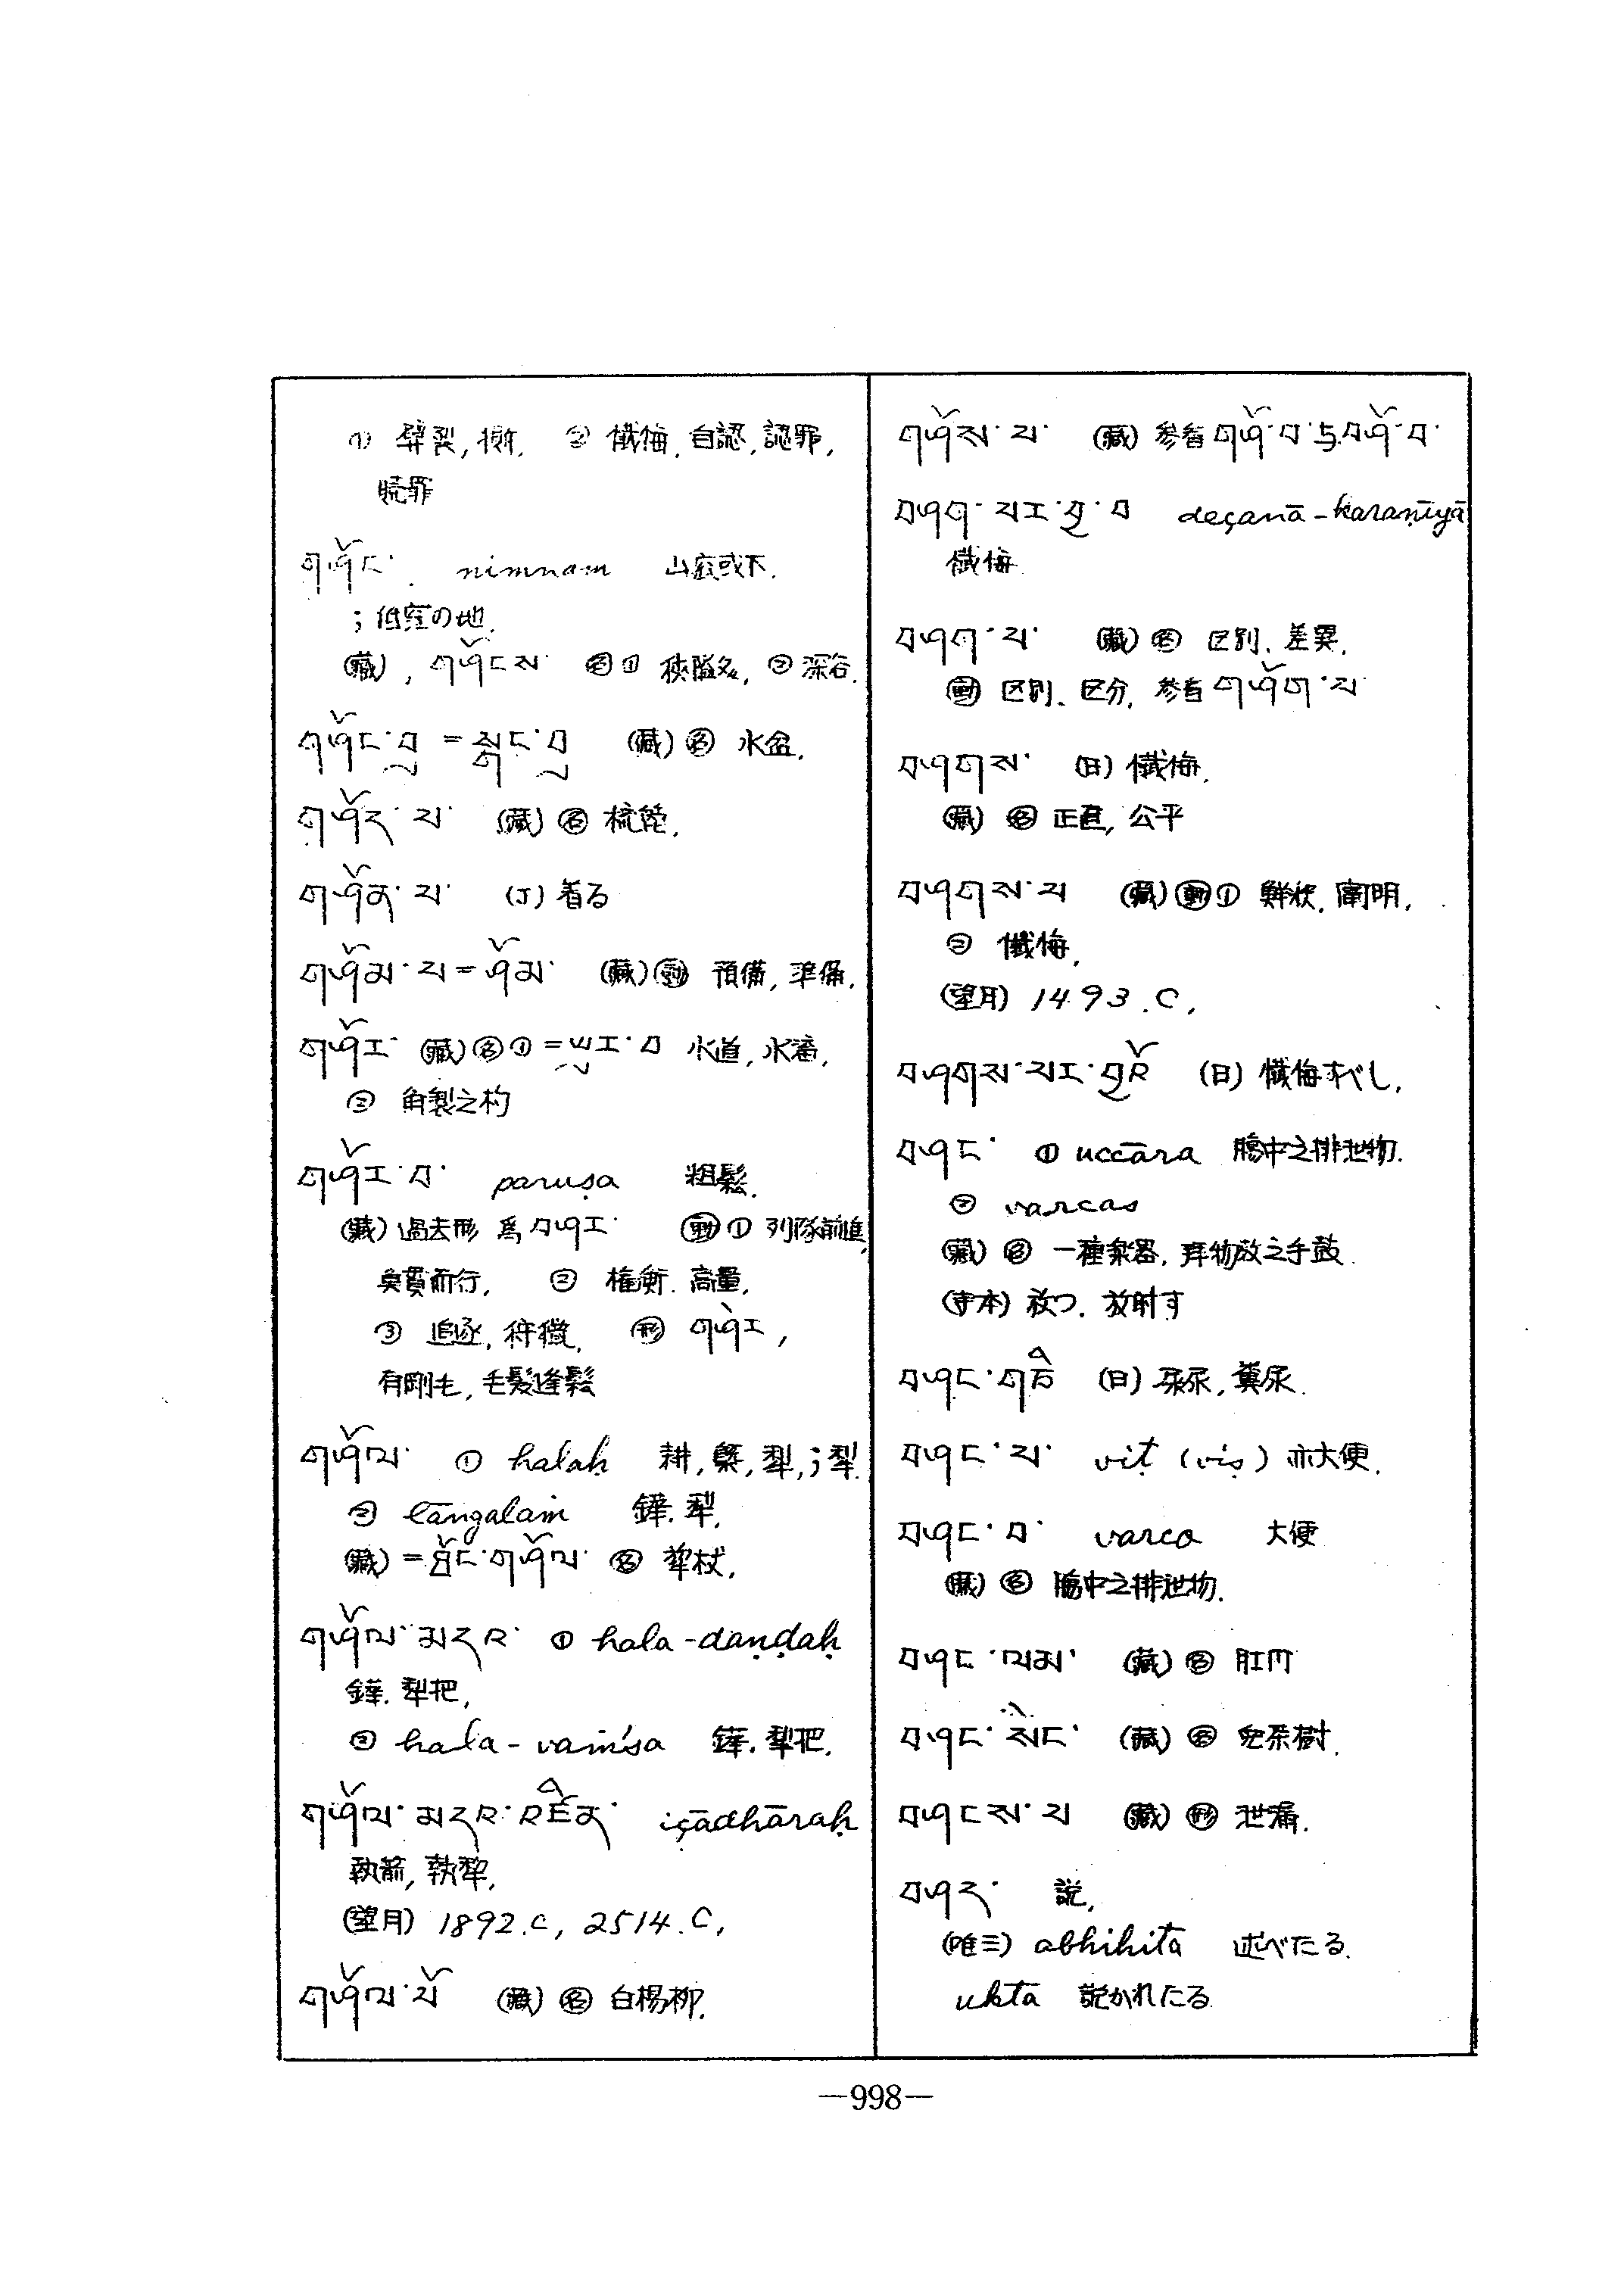 ① 擘裂, 撕, ② 懺悔, 自認, 認罪,
贖罪
གཤོང་ nimnam 山底或下.
; 低窪の地.
(藏), གཤོངས ㊔① 狹隘処, ② 深谷.
གཤོང་བུ = སྒང་བུ (藏) ㊔ 水盆.
གཤོད་པ་ (藏) ㊔ 梳篦.
གཤོན་པ་ (J) 着る
གཤོམ་པ = ཤོམ་ (藏) 動 預備, 準備.
གཤོར་ (藏) ㊔ ① = ཡུར་བ 水道, 水溝,
② 角製之杓
གཤོར་བ་ paruṣa 粗鬆.
(藏) 過去形 爲 བཤར་ 動 ① 列隊前進,
魚貫而行, ② 権衡. 高量,
③ 追逐, 狩獵, 形 གཤེར,
有剛毛, 毛髮逢鬆
གཤོལ་ ① halaḥ 耕, 犂, ; 犁.
② lāṅgalaṁ 鏵. 犁.
(藏) = ཐོང་གཤོལ་ ㊔ 犂杖,
གཤོལ་མདའ་ ① hala-daṇḍaḥ
鏵. 犁把,
② hala-vaṁśa 鏵. 犁把.
གཤོལ་མདའ་འཛིན་ içādhāraḥ
執箭, 執犂,
(望月) 1892.c, 2514.C,
གཤོལ་པོ (藏) ㊔ 白楊柳.
གཤོས་པ་ (藏) 参看 གཤོ་བ་ 与 བཤོ་བ་
བཤག་པར་བྱ་བ deçanā-karaṇīyā
懺悔
བཤག་པ་ (藏) ㊔ 区別、差異.
動 区別、区分, 参看 གཤོག་པ་
བཤགས་ (日) 懺悔.
(藏) ㊔ 正直, 公平
བཤགས་པ (藏) 動 ① 解釈, 闡明,
② 懺悔,
(望月) 1493.C,
བཤགས་པར་བྱའོ (日) 懺悔すべし,
བཤང་ ① uccāra 腸中之排泄物.
② varcas
(藏) ㊔ 一種楽器, 弄物放之手鼓.
(寺本) 放つ. 放射す
བཤང་གཅི (日) 屎尿, 糞尿.
བཤང་པ་ viṭ (viṣ) 亦大便.
བཤང་བ་ varco 大便
(藏) ㊔ 腸中之排泄物.
བཤང་ལམ་ (藏) ㊔ 肛門
བཤང་ཤིང་ (藏) ㊔ 兜茶樹.
བཤངས་པ (藏) 形 泄漏.
བཤད་ 説,
(唯三) abhihitā 述べたる.
uktā 説かれたる
—998—